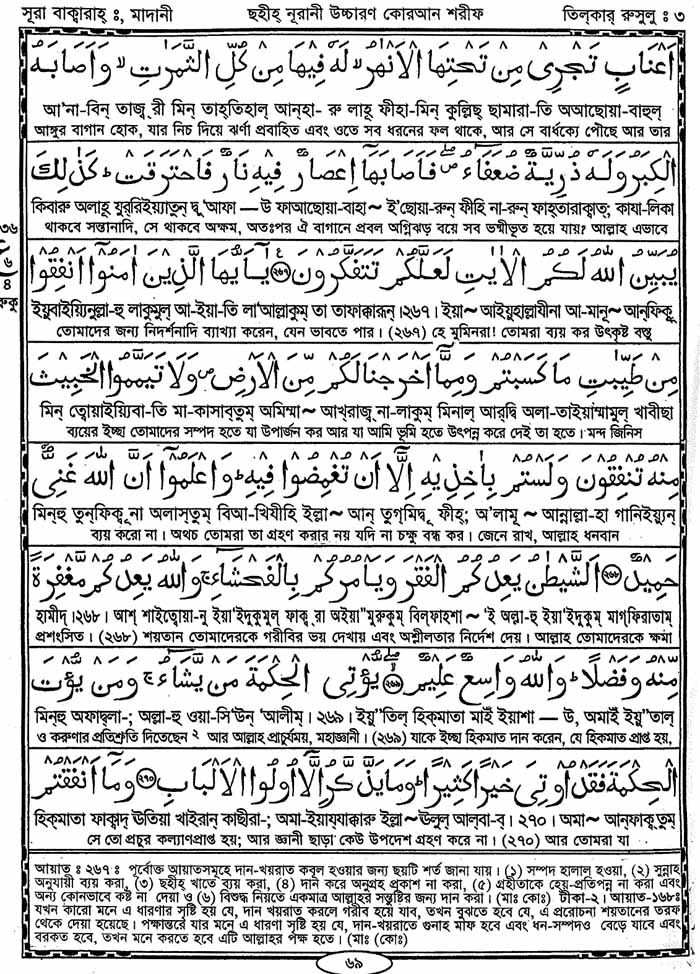 সূরা বাক্বারাহ্ ঃ, মাদানী ছহীহ্ নূরানী উচ্চারণ কোরআন শরীফ তিল্‌কার্ রুসুলু ঃ ৩
اَعْنَابٍ تَجْرِىْ مِنْ تَحْتِهَا الْاَنْهٰرُ ۙ لَهٗ فِيْهَا مِنْ كُلِّ الثَّمَرٰتِ ۙ وَاَصَابَهُ
আ'না-বিন্ তাজ্ রী মিন্ তাহ্তিহাল্ আন্হা- রু লাহূ ফীহা-মিন্ কুল্লিছ্ ছামারা-তি অআছোয়া-বাহুল্
আঙ্গুর বাগান হোক, যার নিচ দিয়ে ঝর্ণা প্রবাহিত এবং ওতে সব ধরনের ফল থাকে, আর সে বার্ধক্যে পৌছে আর তার
الْكِبَرُ وَلَهٗ ذُرِّيَّةٌ ضُعَفَآءُ ۖ فَاَصَابَهَاۤ اِعْصَارٌ فِيْهِ نَارٌ فَاحْتَرَقَتْ ؕ كَذٰلِكَ
কিবারু অলাহূ যুর্‌রিইয়্যাতুন্ দ্বু 'আফা — উ ফাআছোয়া-বাহা ~ ই'ছোয়া-রুন্ ফীহি না-রুন্ ফাহ্তারাক্বাত্; কাযা-লিকা
থাকবে সন্তানাদি, সে থাকবে অক্ষম, অতঃপর ঐ বাগানে প্রবল অগ্নিঝড় বয়ে সব ভস্মীভূত হয়ে যায়? আল্লাহ এভাবে
৩৬
৬
৪
রুকু
يُبَيِّنُ اللهُ لَكُمُ الْاٰيٰتِ لَعَلَّكُمْ تَتَفَكَّرُوْنَ ﴿٢٦٧﴾ يٰۤاَيُّهَا الَّذِيْنَ اٰمَنُوْۤا اَنْفِقُوْا
ইয়ুবাইয়্যিনুল্লা-হু লাকুমুল্ আ-ইয়া-তি লা'আল্লাকুম্ তা তাফাক্কারূন্।২৬৭। ইয়া~ আইয়ুহাল্লাযীনা আ-মানূ~ আন্‌ফিক্বূ
তোমাদের জন্য নিদর্শনাদি ব্যাখ্যা করেন, যেন ভাবতে পার। (২৬৭) হে মুমিনরা! তোমরা ব্যয় কর উৎকৃষ্ট বস্তু
مِنْ طَيِّبٰتِ مَا كَسَبْتُمْ وَمِمَّاۤ اَخْرَجْنَا لَكُمْ مِّنَ الْاَرْضِ ۪ وَلَا تَيَمَّمُوا الْخَبِيْثَ
মিন্ ত্বোয়াইয়্যিবা-তি মা-কাসাব্‌তুম্ অমিম্মা~ আখ্‌রাজ্‌ না-লাকুম্ মিনাল্ আর্‌দ্বি অলা-তাইয়াম্মামুল্ খাবীছা
ব্যয়ের ইচ্ছা তোমাদের সম্পদ হতে যা উপার্জন কর আর যা আমি ভূমি হতে উৎপন্ন করে দেই তা হতে। মন্দ জিনিস
مِنْهُ تُنْفِقُوْنَ وَلَسْتُمْ بِاٰخِذِيْهِ اِلَّاۤ اَنْ تُغْمِضُوْا فِيْهِ ؕ وَاعْلَمُوْۤا اَنَّ اللهَ غَنِىٌّ
মিন্‌হু তুন্‌ফিক্বূ না অলাস্‌তুম্ বিআ-খিযীহি ইল্লা~ আন্ তুগ্‌মিদ্বূ ফীহ্; অ'লামূ ~ আন্নাল্লা-হা গানিইয়্যুন্
ব্যয় করো না। অথচ তোমরা তা গ্রহণ করার নয় যদি না চক্ষু বন্ধ কর। জেনে রাখ, আল্লাহ ধনবান
حَمِيْدٌ ﴿٢٦٨﴾ اَلشَّيْطٰنُ يَعِدُكُمُ الْفَقْرَ وَيَاْمُرُكُمْ بِالْفَحْشَآءِ ۚ وَاللهُ يَعِدُكُمْ مَّغْفِرَةً
হামীদ্।২৬৮। আশ্ শাইত্বোয়া-নু ইয়া'ইদুকুমুল্ ফাক্ব্ রা অইয়া"মুরুকুম্ বিল্‌ফাহশা ~ 'ই অল্লা-হু ইয়া'ইদুকুম্ মাগ্‌ফিরাতাম্
প্রশংসিত। (২৬৮) শয়তান তোমাদেরকে গরীবির ভয় দেখায় এবং অশ্লীলতার নির্দেশ দেয়। আল্লাহ তোমাদেরকে ক্ষমা
مِّنْهُ وَفَضْلًا ؕ وَاللهُ وَاسِعٌ عَلِيْمٌ ﴿٢٦٩﴾ يُّؤْتِى الْحِكْمَةَ مَنْ يَّشَآءُ ۚ وَمَنْ يُّؤْتَ
মিন্‌হু অফাদ্ব্‌লা-; অল্লা-হু ওয়া-সি'উন্ 'আলীম্।২৬৯। ইয়ু"তিল্ হিক্‌মাতা মাইঁ ইয়াশা — উ, অমাইঁ ইয়ু"তাল্
ও করুণার প্রতিশ্রুতি দিতেছেন ২ আর আল্লাহ প্রাচুর্যময়, মহাজ্ঞানী। (২৬৯) যাকে ইচ্ছা হিকমাত দান করেন, যে হিকমাত প্রাপ্ত হয়,
الْحِكْمَةَ فَقَدْ اُوْتِىَ خَيْرًا كَثِيْرًا ؕ وَمَا يَذَّكَّرُ اِلَّاۤ اُولُوا الْاَلْبَابِ ﴿٢٧٠﴾ وَمَاۤ اَنْفَقْتُمْ
হিক্‌মাতা ফাক্বাদ্ ঊতিয়া খাইরান্ কাছীরা-; অমা-ইয়ায্‌যাক্কারু ইল্লা~ঊলুল্ আল্‌বা-ব্। ২৭০। অমা~ আন্‌ফাক্ব্‌তুম্
সে তো প্রচুর কল্যাণপ্রাপ্ত হয়; আর জ্ঞানী ছাড়া কেউ উপদেশ গ্রহণ করে না। (২৭০) আর তোমরা যা
আয়াত ঃ ২৬৭ ঃ পূর্বোক্ত আয়াতসমূহে দান-খয়রাত কবুল হওয়ার জন্য ছয়টি শর্ত জানা যায়। (১) সম্পদ হালাল হওয়া, (২) সুন্নাহ
অনুযায়ী ব্যয় করা, (৩) ছহীহ খাতে ব্যয় করা, (৪) দান করে অনুগ্রহ প্রকাশ না করা, (৫) গ্রহীতাকে হেয়-প্রতিপন্ন না করা এবং
অন্য কোনভাবে কষ্ট না দেয়া ও (৬) বিশুদ্ধ নিয়তে একমাত্র আল্লাহর সন্তুষ্টির জন্য দান করা। (মাঃ কোঃ) টীকা-২। আয়াত-১৬৮ঃ
যখন কারো মনে এ ধারণার সৃষ্টি হয় যে, দান খয়রাত করলে গরীব হয়ে যাব, তখন বুঝতে হবে যে, এ প্ররোচনা শয়তানের তরফ
থেকে দেয়া হয়েছে। পক্ষান্তরে যার মনে এ ধারণা সৃষ্টি হয় যে, দান-খয়রাতে গুনাহ মাফ হবে এবং ধন-সম্পদও বেড়ে যাবে এবং
বরকত হবে, তখন মনে করতে হবে এটি আল্লাহর পক্ষ হতে। (মাঃ কোঃ)
৬৯